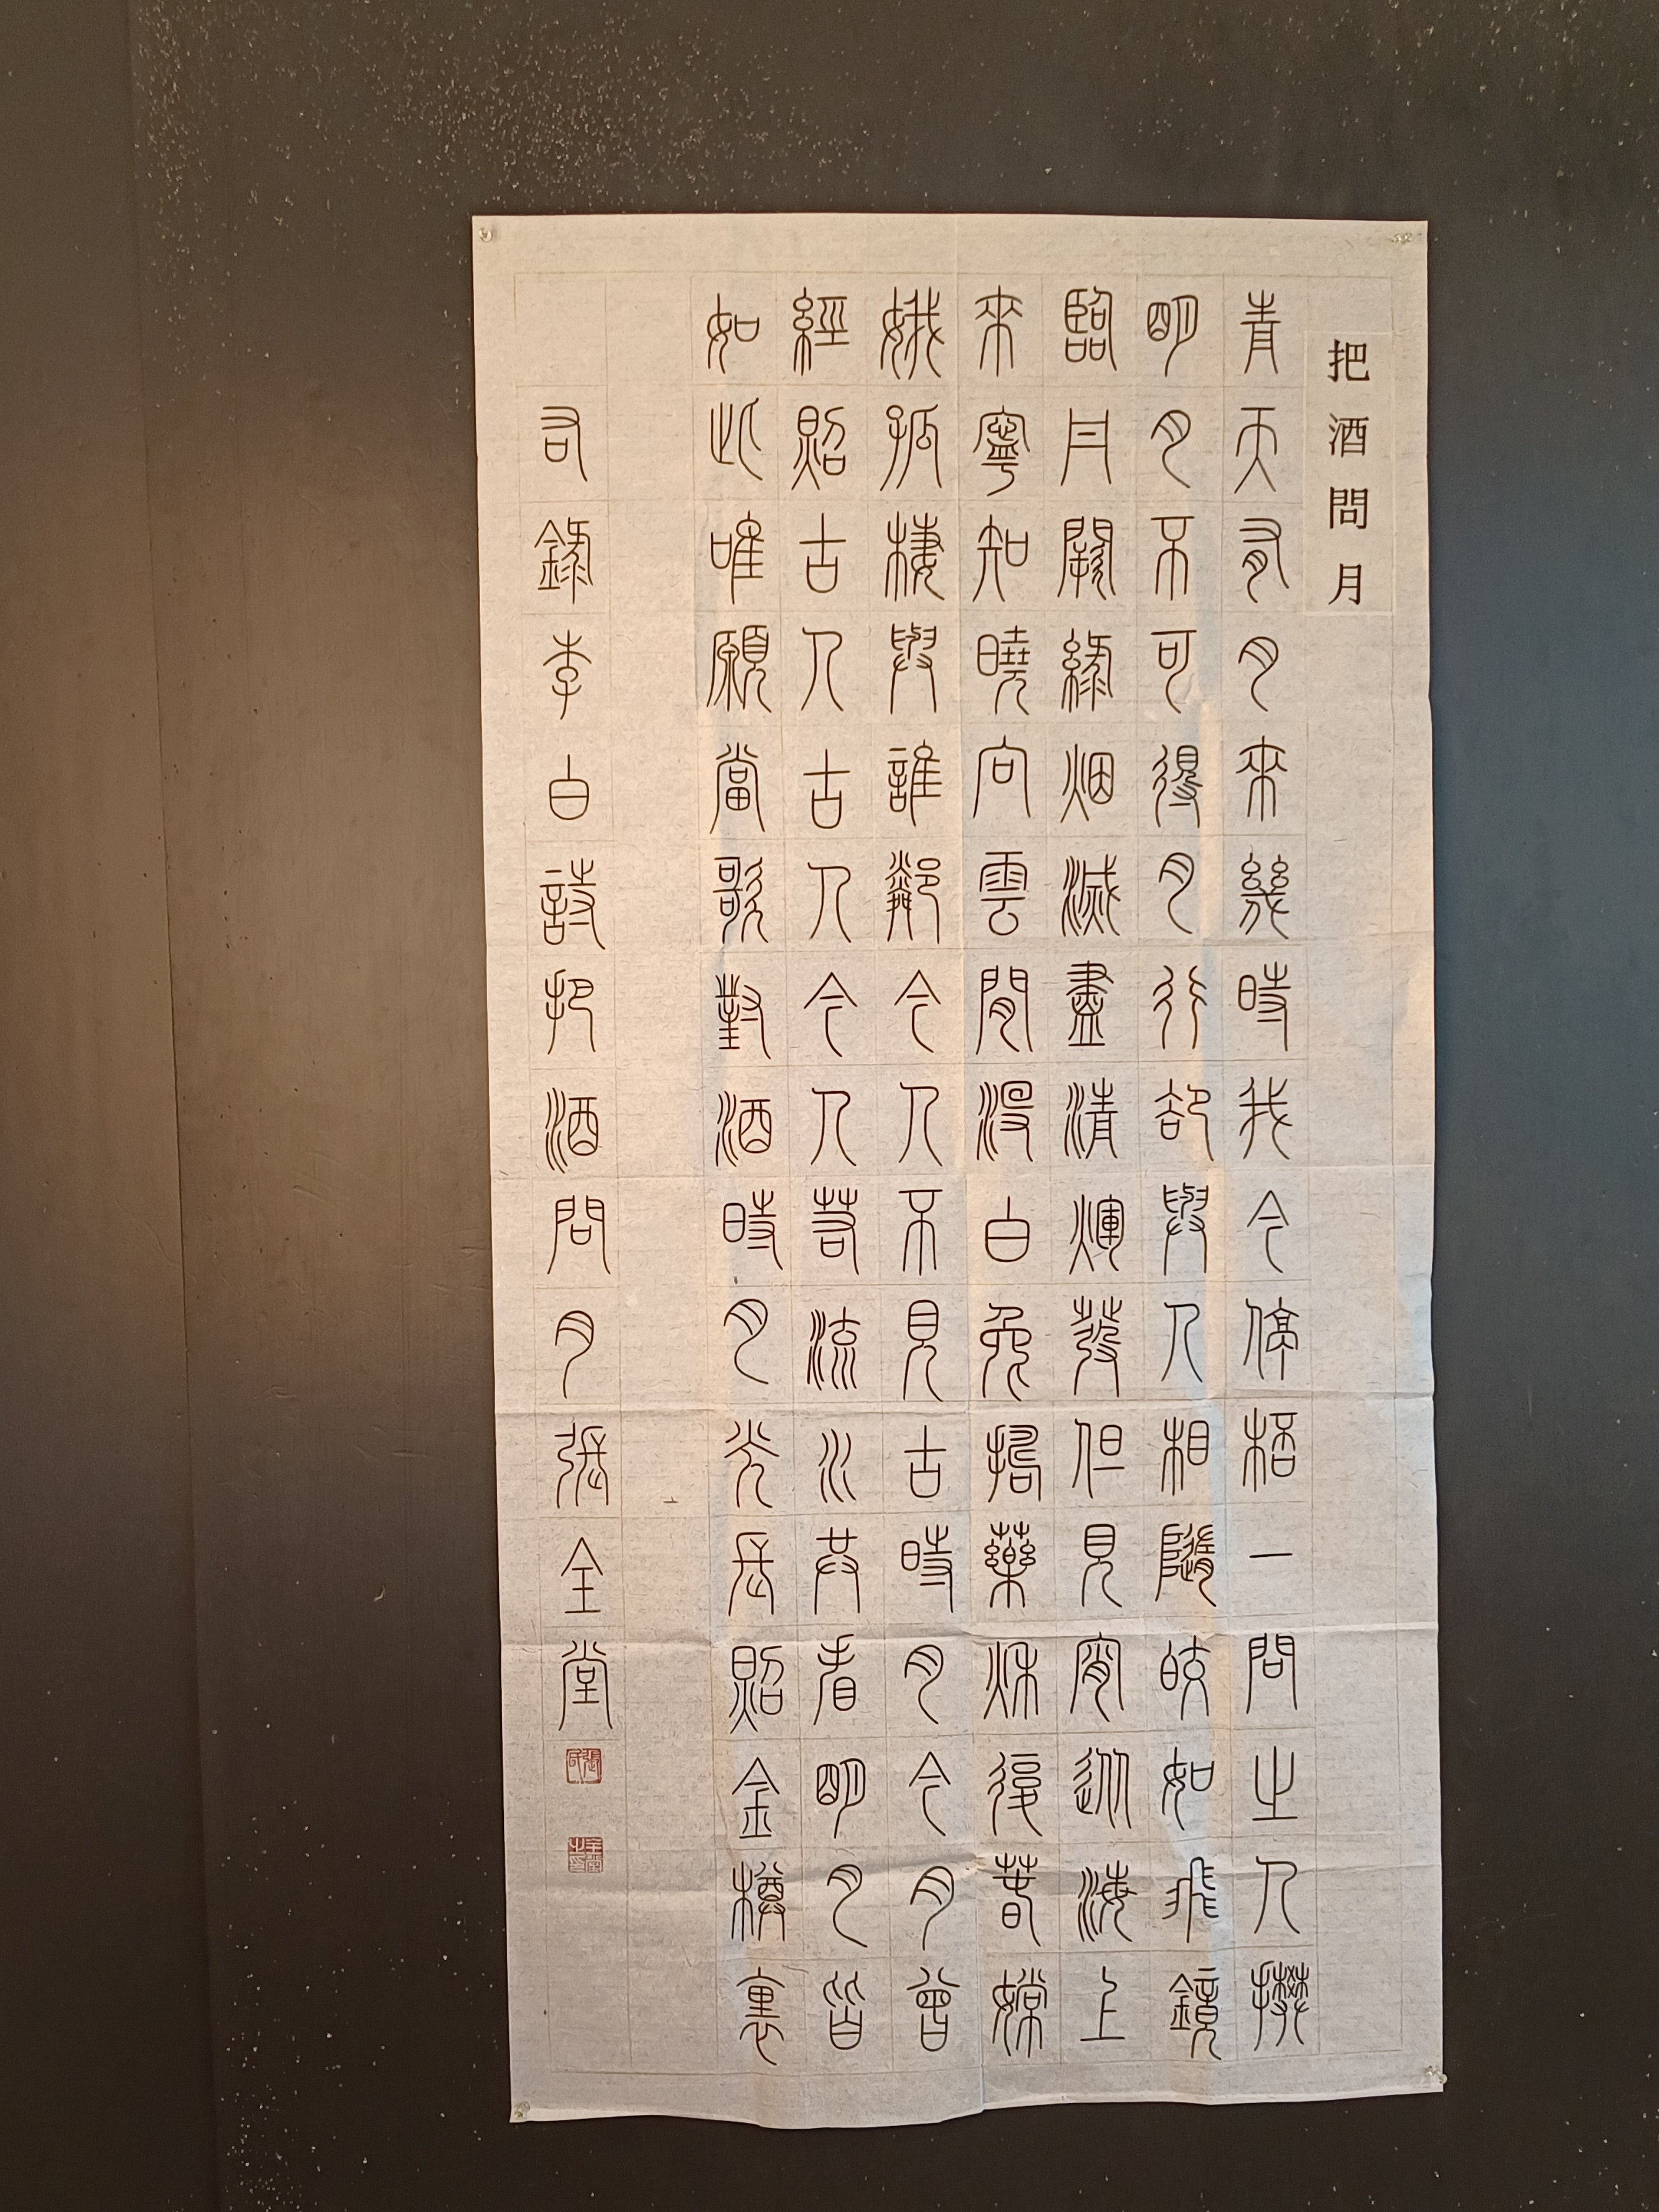 把酒問月
青天有月來幾時我今停桮一問之人攀
明月不可得月行卻與人相隨皎如飛鏡
臨丹闕綠烟滅盡清輝發但見宵從海上
來寧知曉向雲間沒白兔搗藥秋復春嫦
娥孤棲與誰鄰今人不見古時月今月曾
經照古人古人今人若流水共看明月皆
如此唯願當歌對酒時月光長照金樽裏
右錄李白詩把酒問月張全堂
全堂之印